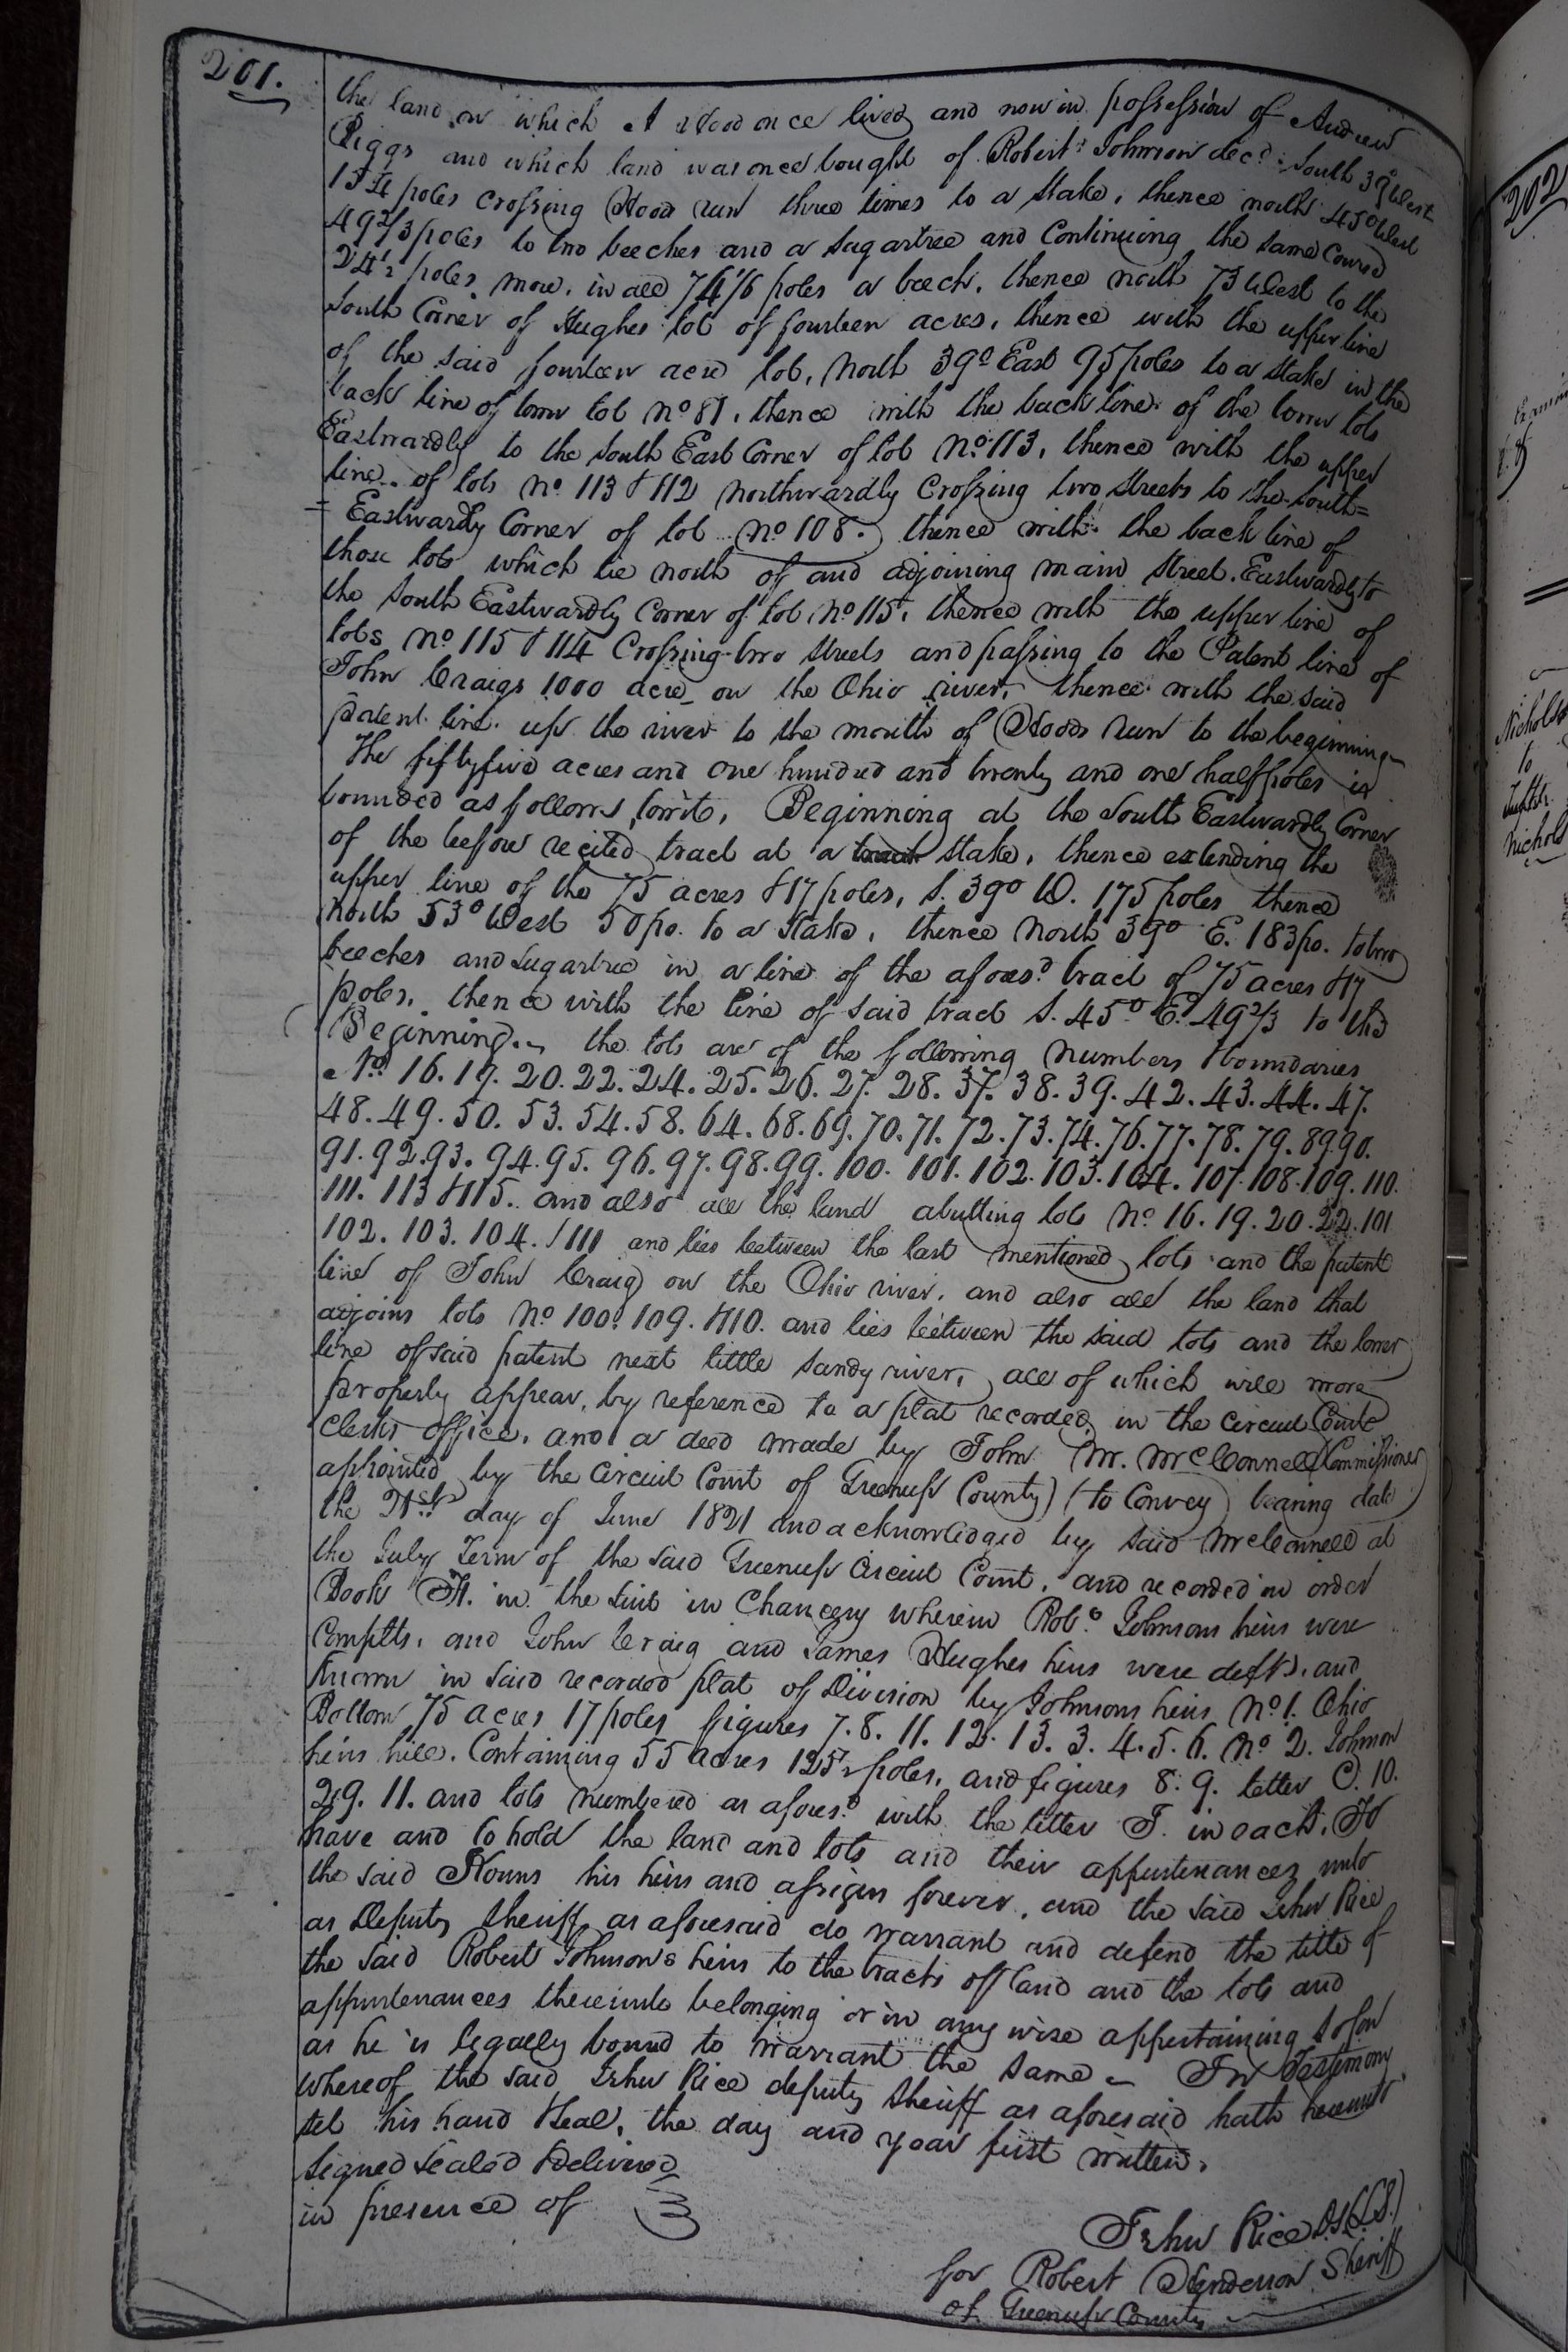 201.
the land on which A Wood once lived and now in possession of Andrew
Riggs and which land was once bought of Robert Johnson dec.d South 39° West
134 poles crossing Woods run three times to a stake, thence north 45° West
49 2/3 poles to two beeches and a sugartree and Continuing the same Course
24 1/2 poles more, in all 74 1/6 poles a beech, thence north 73 West to the
South Corner of Hughes lot of fourteen acres, thence with the upper line
of the said fourteen acre lot, North 39° East 95 poles to a stake in the
back line of town lot No 81, thence with the back line of the town lots
Eastwardly to the South East Corner of lot No 113, thence with the upper
line of lots No 113 & 112 Northwardly Crossing two streets to the South=
= Eastwardly Corner of lot No 108. thence with the back line of
those lots which lie north of and adjoining main Street. Eastwardly to
the South Eastwardly Corner of lot No 115, thence with the upper line of
lots No 115 & 114 Crossing two streets and passing to the Patent line of
John Craigs 1000 acre on the Ohio river, thence with the said
patent line up the river to the mouth of Woods run to the beginning
The fifty five acres and one hundred and twenty and one half poles is
bounded as follows, towit, Beginning at the South Eastwardly Corner
of the before recited tract at a stake, thence extending the
upper line of the 75 acres & 17 poles, S. 39° W. 175 poles thence
North 53° West 50 po. to a stake, thence North 39° E. 183 po. to two
beeches and sugartree in a line of the afores.d tract of 75 acres & 17
poles, thence with the line of said tract S. 45° E. 49 2/3 to the
Beginning. the lots are of the following numbers & boundaries
No 16. 19. 20. 22. 24. 25. 26. 27. 28. 37. 38. 39. 42. 43. 44. 47.
48. 49. 50. 53. 54. 58. 64. 68. 69. 70. 71. 72. 73. 74. 76. 77. 78. 79. 89. 90.
91. 92. 93. 94. 95. 96. 97. 98. 99. 100. 101. 102. 103. 104. 107. 108. 109. 110.
111. 113 & 115. and also all the land abutting lots No 16. 19. 20. 22. 101
102. 103. 104. & 111 and lies between the last mentioned lots and the patent
line of John Craig on the Ohio river. and also all the land that
adjoins lots No 100. 109. & 110. and lies between the said lots and the lower
line of said patent next little Sandy river, all of which will more
properly appear, by reference to a plat recorded in the Circuit Court
Clerks office, and a deed made by John M. McConnell (Commissioner
appointed by the Circuit Court of Greenup County) (to Convey) bearing date
the 21st day of June 1821 and acknowledged by said McConnell at
the July Term of the said Greenup Circuit Court, and recorded in order
Book in the Suit in Chancery wherein Rob.t Johnsons heirs were
Complts, and John Craig and James Hughes heirs were defts, and
known in said recorded plat of Division by Johnsons heirs No 1. Ohio
Bottom 75 acres 17 poles figures 7. 8. 11. 12. 13. 3. 4. 5. 6. No 2. Johnson
heirs hill. Containing 55 acres poles, and figures 8. 9. letter C. 10.
29. 11. and lots numbered as afores.d with the letter J. in each. To
have and to hold the land and lots and their appurtenances unto
the said Nouns his heirs and assigns forever, and the said John Rice
as Deputy Sheriff as aforesaid do warrant and defend the title of
the said Robert Johnsons heirs to the tracts of land and the lots and
appurtenances thereunto belonging or in any wise appertaining so far
as he is legally bound to warrant the same. In Testimony
whereof the said John Rice deputy Sheriff as aforesaid hath hereunto
set his hand & seal, the day and year first written.
Signed Sealed & Delivered
in presence of
John Rice D.S. (L.S.)
for Robert Henderson Sheriff
of Greenup County
202
to
Nichols